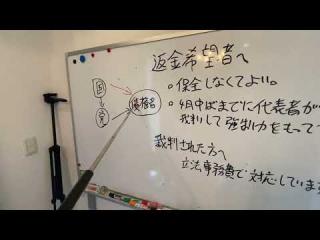 返金希望者へ
・保全しなくてよい。
・4月中ばまでに代表者が
裁判して強制力をもって
裁判された方へ
立法事務費で対応していま
国
党
債権者